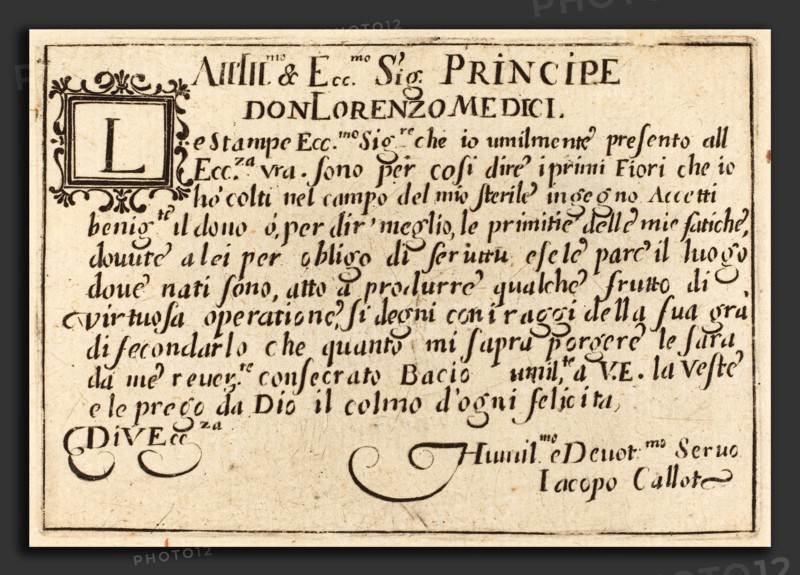 All Ill.mo & Ecc.mo Sig. PRINCIPE
DON LORENZO MEDICI.
Le Stampe Ecc.mo Sig.re che io umilmente presento all
Ecc.za vra. sono per cosi dire i primi Fiori che io
ho colti nel campo del mio sterile ingegno Accetti
benig.te il dono ó, per dir meglio, le primitie delle mie fatiche,
douute a lei per obligo di seruitu e se le pare il luogo
doue nati sono, atto a produrre qualche frutto di
virtuosa operatione, si degni con i raggi della sua grà
di fecondarlo che quanto mi saprà porgere le sara
da me reuer.te consecrato Bacio umil.te a V.E. la veste
e le prego da Dio il colmo d'ogni felicita,
Di V Ecc.za
Humil.mo e Deuot.mo Seruo
Iacopo Callot
PHOTO12